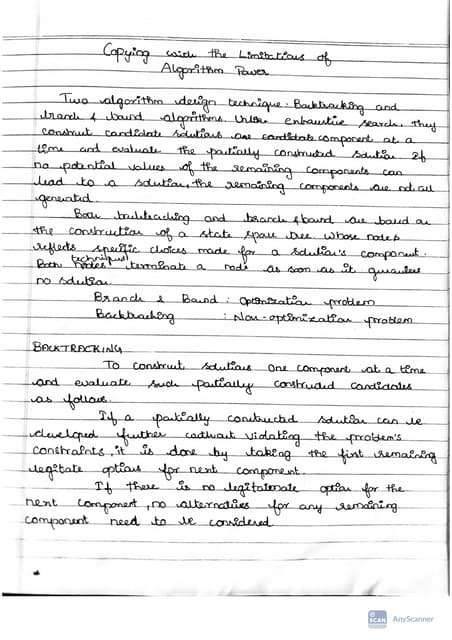 Copying with the Limitations of
Algorithm Power
Two algorithm design technique. Backtracking and
branch & bound algorithms. Unlike exhaustive search, they
construct candidate solutions one candidate component at a
time and evaluate the partially constructed solution If
no potential values of the remaining components can
lead to a solution, the remaining components are not all
generated.
Both backtracking and branch & bound are based on
the construction of a state space tree whose nodes
reflects specific choices made for a solution's component.
techniques
Both nodes terminate a node as soon as it guarantees
no solution.
Branch & Bound : Optimization problem
Backtracking : Non-optimization problem
BACKTRACKING
To construct solutions one component at a time
and evaluate such partially constructed candidates
as follows.
If a partially constructed solution can be
developed further without violating the problem's
constraints, it is done by taking the first remaining
legitate options for next component.
If there is no legitatemate option for the
next component, no alternatives for any remaining
component need to be considered
SCAN AnyScanner